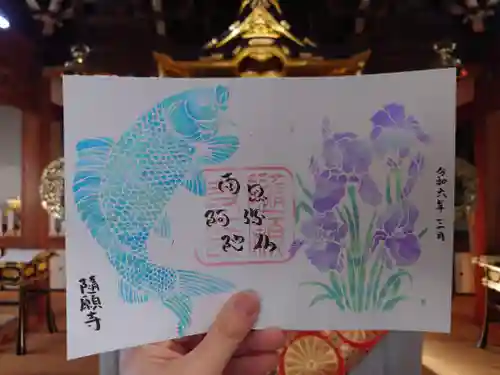 令和六年
南無
阿弥
陀仏
隨願寺